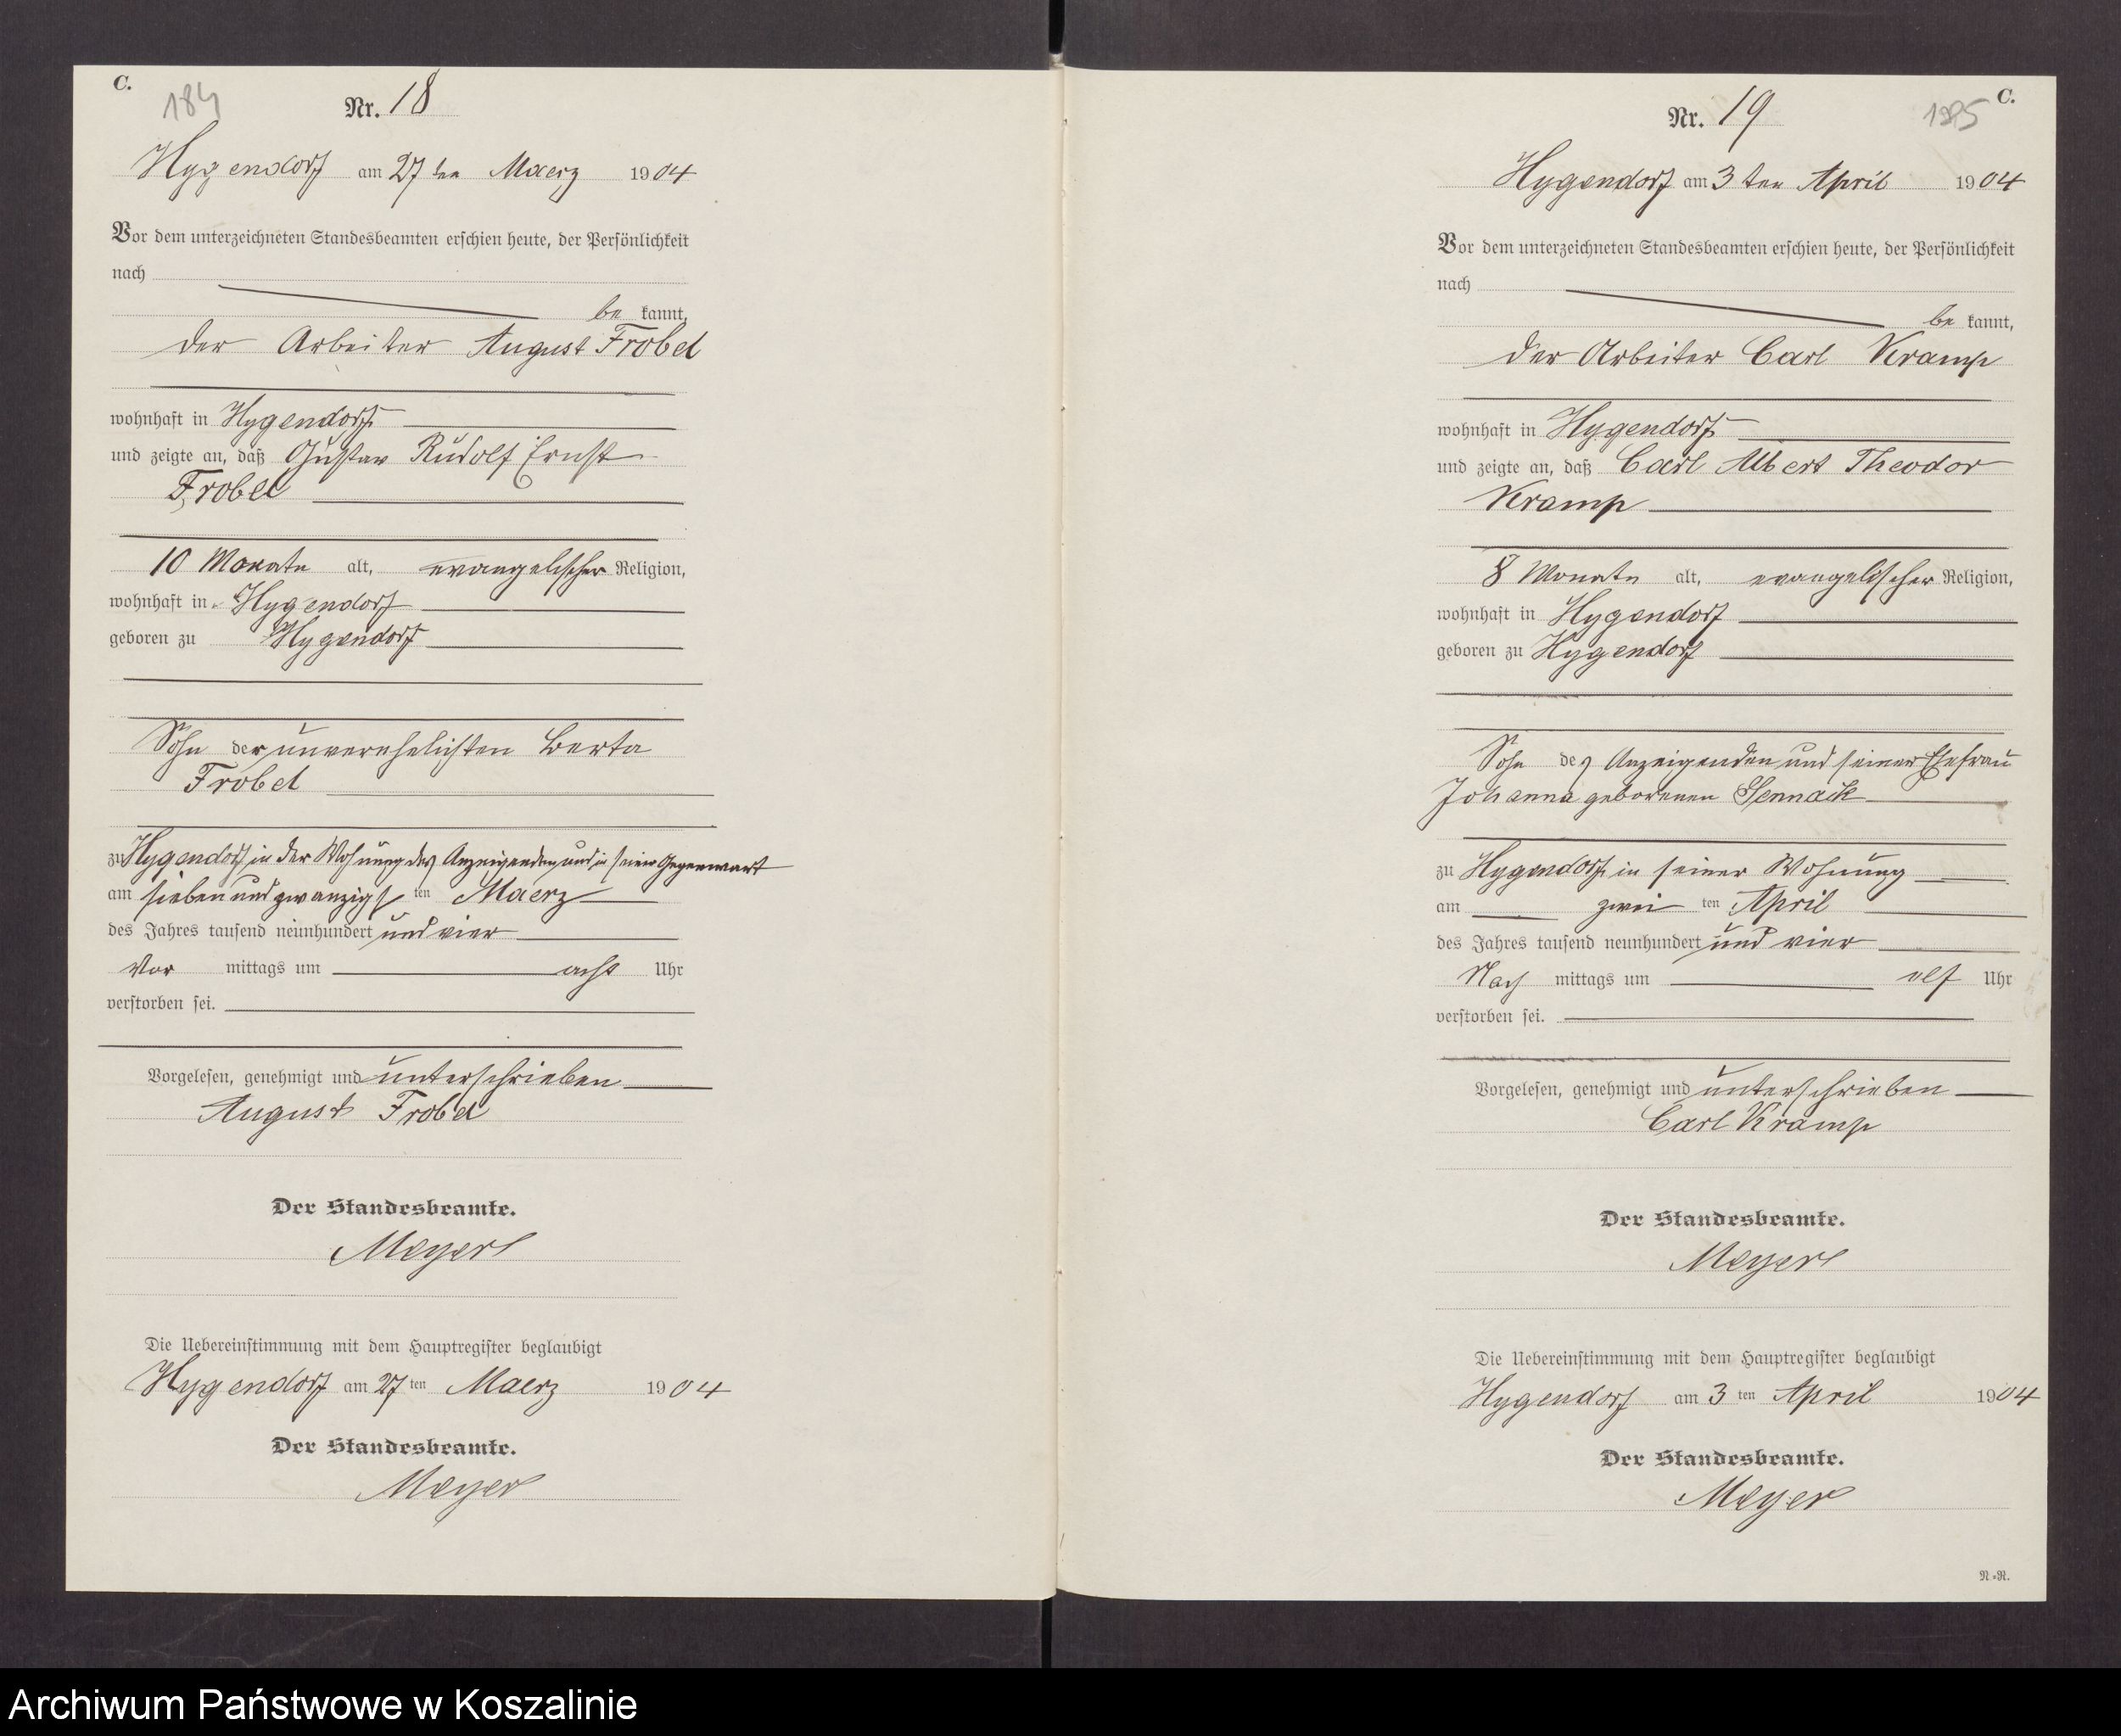 C.
184
Nr. 18
Hygendorf am 27 ten Maerz 1904
Vor dem unterzeichneten Standesbeamten erschien heute, der Persönlichkeit
nach
be kannt,
der Arbeiter August Frobel
wohnhaft in Hygendorf
und zeigte an, daß Gustav Rudolf Ernst
Frobel
10 Monate alt, evangelischer Religion,
wohnhaft in Hygendorf
geboren zu Hygendorf
Sohn der unverehelichten Berta
Frobel
zu Hygendorf in der Wohnung des Anzeigenden und in seiner Gegenwart
am sieben und zwanzigsten Maerz
des Jahres tausend neunhundert und vier
Vor mittags um acht Uhr
verstorben sei.
Vorgelesen, genehmigt und unterschrieben
August Frobel
Der Standesbeamte.
Meyer
Die Uebereinstimmung mit dem Hauptregister beglaubigt
Hygendorf am 27 ten Maerz 1904
Der Standesbeamte.
Meyer
C.
Nr. 19
Hygendorf am 3 ten April 1904
Vor dem unterzeichneten Standesbeamten erschien heute, der Persönlichkeit
nach
be kannt,
der Arbeiter Carl Kramp
wohnhaft in Hygendorf
und zeigte an, daß Carl Albert Theodor
Kramp
8 Monate alt, evangelischer Religion,
wohnhaft in Hygendorf
geboren zu Hygendorf
Sohn des Anzeigenden und seiner Ehefrau
Johanna geborenen
zu Hygendorf in seiner Wohnung
am zwei ten April
des Jahres tausend neunhundert und vier
Nach mittags um elf Uhr
verstorben sei.
Vorgelesen, genehmigt und unterschrieben
Carl Kramp
Der Standesbeamte.
Meyer
Die Uebereinstimmung mit dem Hauptregister beglaubigt
Hygendorf am 3 ten April 1904
Der Standesbeamte.
Meyer
R.=R.
Archiwum Państwowe w Koszalinie